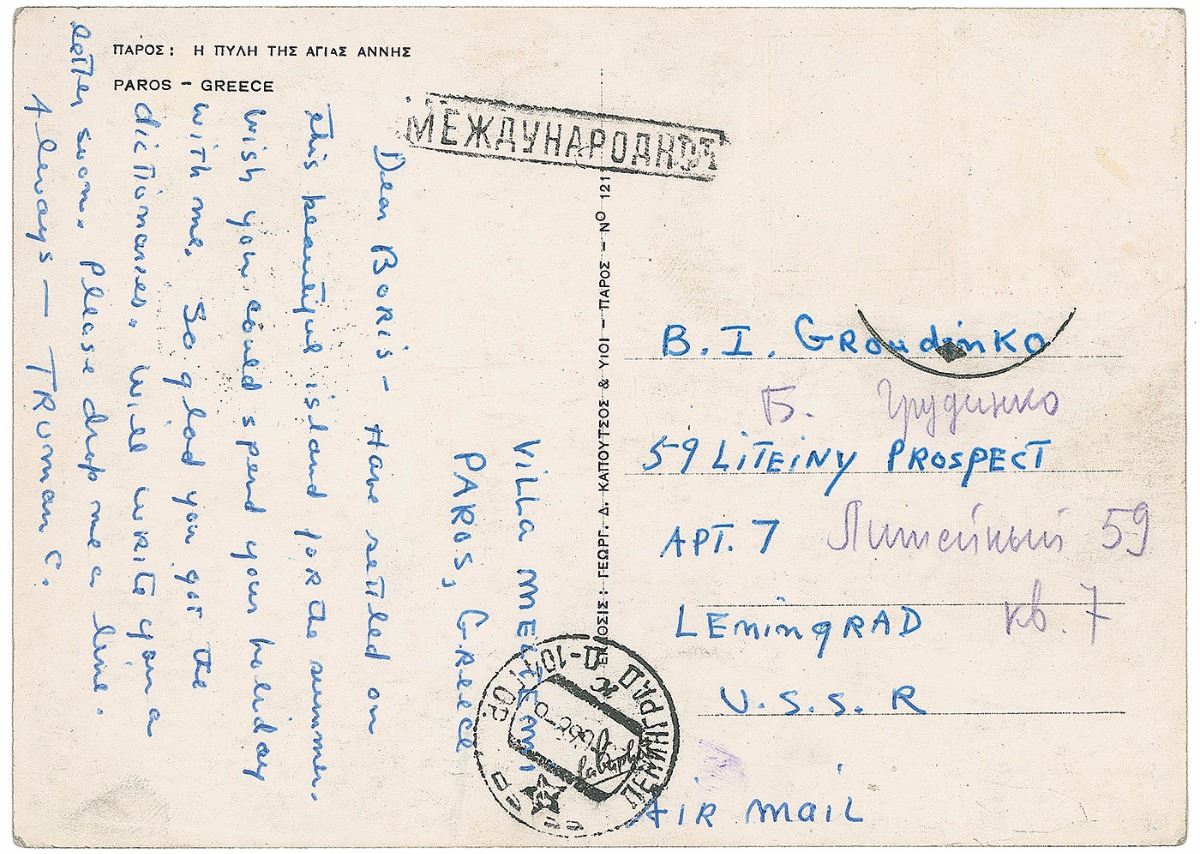 ΠΑΡΟΣ: Η ΠΥΛΗ ΤΗΣ ΑΓΙΑΣ ΑΝΝΗΣ
PAROS - GREECE
МЕЖДУНАРОДНОЕ
Villa Meltemi,
PAROS, Greece
Dear Boris - Have settled on
this beautiful island for the summer.
Wish you could spend your holiday
with me. So glad you got the
dictionaries. Will write you a
letter soon. Please drop me a line.
Always - TRUMAN C.
ΕΚΔΟΣΙΣ: ΓΕΩΡΓ. Δ. ΚΑΠΟΥΤΣΟΣ & ΥΙΟΙ - ΠΑΡΟΣ - Νο 121
B. I. GROUDINKO
Б. Грудинко
59 LITEINY PROSPECT
APT. 7 Литейный 59
LENINGRAD кв. 7
U.S.S.R
AIR MAIL
ЛЕНИНГРАД